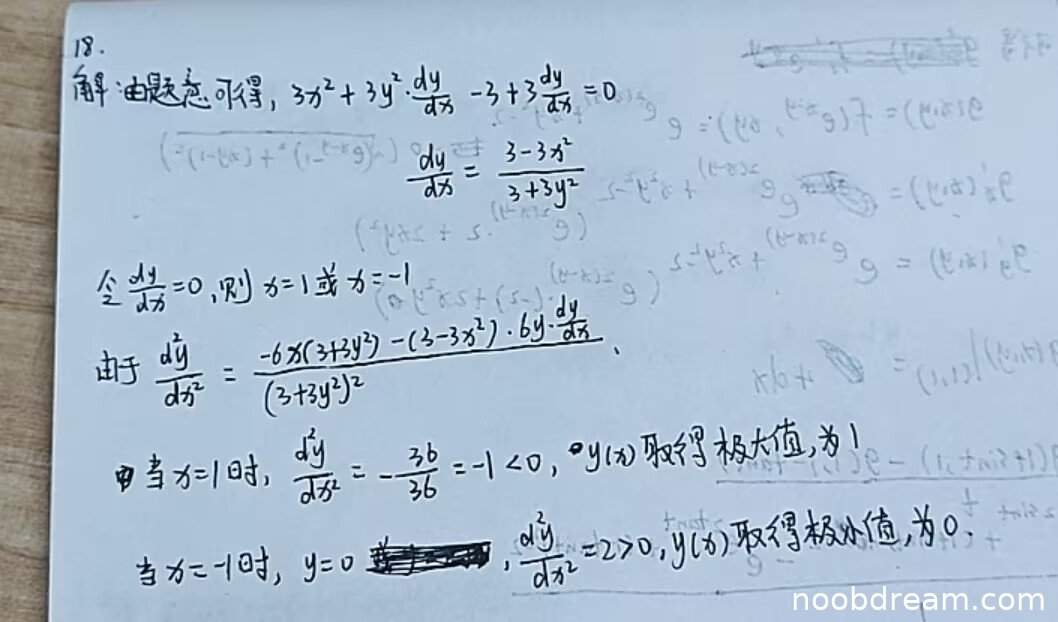 18.
解:由题意可得, 3x²+3y²·dy/dx -3+3dy/dx=0
dy/dx = (3-3x²)/(3+3y²)
令dy/dx=0,则 x=1或x=-1
由于 d²y/dx² = (-6x(3+3y²)-(3-3x²)·6y·dy/dx)/(3+3y²)².
当x=1时, d²y/dx² = -36/36 = -1<0, y(x)取得极大值,为1
当x=-1时, y=0, d²y/dx²=2>0, y(x)取得极小值,为0.
noobdream.com